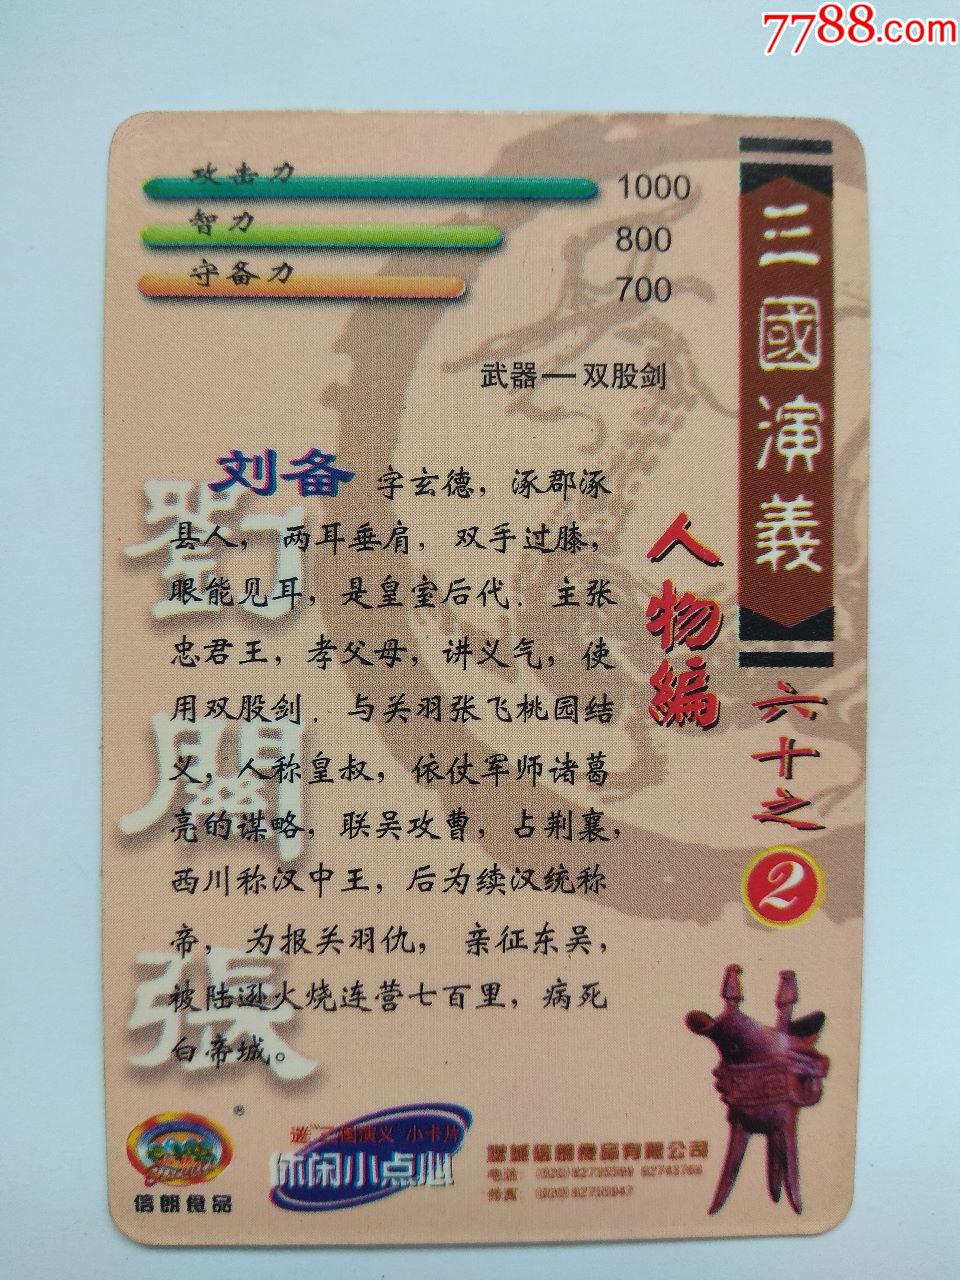 7788.com
攻击力 1000
智力 800
守备力 700
三國演義
武器一双股剑
人物編
六十之2
劉
關
張
刘备 字玄德，涿郡涿
县人，两耳垂肩．双手过膝，
眼能见耳，是皇室后代．主张
忠君王，孝父母，讲义气，使
用双股剑．与关羽张飞桃园结
义，人称皇叔，依仗军师诸葛
亮的谋略，联吴攻曹，占荆襄，
西川称汉中王，后为续汉统称
帝，为报关羽仇，亲征东吴，
被陆逊火烧连营七百里，病死
白帝城。
®
信朗食品
送"三国演义"小卡片
休闲小点心
信朗食品有限公司
电话：
传真：